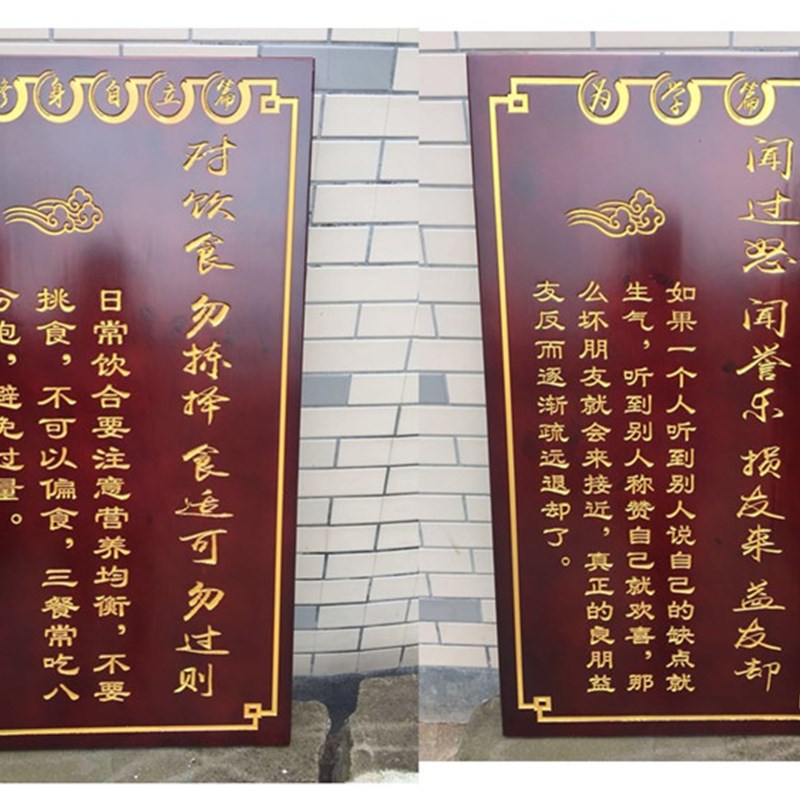 修身自立篇
对饮食 勿拣择 食适可 勿过则
日常饮合要注意营养均衡，不要
挑食，不可以偏食，三餐常吃八
分饱，避免过量。
为学篇
闻过怒 闻誉乐 损友来 益友却
如果一个人听到别人说自己的缺点就
生气，听到别人称赞自己就欢喜，那
么坏朋友就会来接近，真正的良朋益
友反而逐渐疏远退却了。